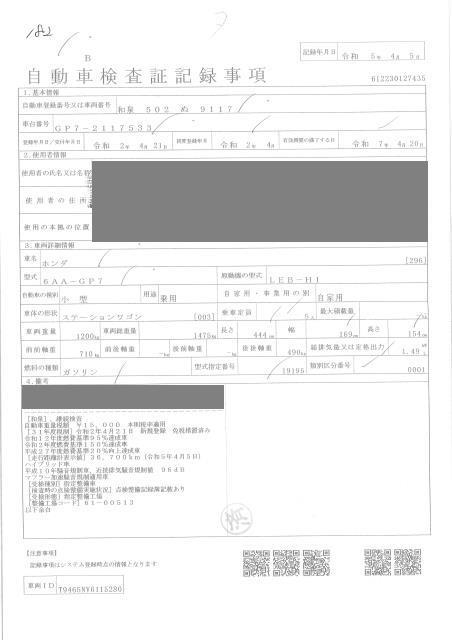 182
B
記録年月日 令和 5年 4月 5日
自動車検査証記録事項
612230127435
1.基本情報
自動車登録番号又は車両番号 和泉 502 ぬ 9117
車台番号 GP7-2117533
登録年月日/交付年月日 令和 2年 4月 21日 初度登録年月 令和 2年 4月 有効期間の満了する日 令和 7年 4月 20日
2.使用者情報
使用者の氏名又は名称
使用者の住所
使用の本拠の位置
3.車両詳細情報
車名 ホンダ [296]
型式 6AA-GP7 原動機の型式 LEB-H1
自動車の種別 小型 用途 乗用 自家用・事業用の別 自家用
車体の形状 ステーションワゴン [003] 乗車定員 5人 最大積載量 -kg
車両重量 1200kg 車両総重量 1475kg 長さ 444cm 幅 169cm 高さ 154cm
前前軸重 710kg 前後軸重 -kg 後前軸重 -kg 後後軸重 490kg 総排気量又は定格出力 1.49
燃料の種類 ガソリン 型式指定番号 19195 類別区分番号 0001
4.備考
[和泉],継続検査
自動車重量税額 ¥15,000 本則税率適用
[31年度税制]令和2年4月21日 新規登録 免税措置済み
令和12年度燃費基準95%達成車
令和2年度燃費基準150%達成車
平成27年度燃費基準20%向上達成車
[走行距離計表示値]36,700km(令和5年4月5日)
ハイブリッド車
平成10年騒音規制車、近接排気騒音規制値 96dB
マフラー加速騒音規制適用車
[受検種別]指定整備車
[検査時の点検整備実施状況]点検整備記録簿記載あり
[受検形態]指定整備工場
[整備工場コード]61-00513
以下余白
【注意事項】
記録事項はシステム登録時点の情報となります
車両ID T9465NV6115280